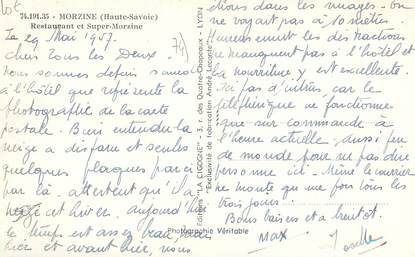 Lot
74.191.35 - MORZINE (Haute-Savoie)
Restaurant et Super-Morzine
Le 29 Mai 1957.
74)
Chers tous les Deux.
Nous sommes depuis samedi
à l'hôtel que représente la
photographie de la carte
postale. Bien entendu la
neige a disparu et seules
quelques plaques par ci
par là. attestent qu'il a
neigé cet hiver. aujourd'hui
le temps est assez beau, mais
hier et avant hier, nous
Editions "LA CIGOGNE" - 3, r. des Quatre-Chapeaux - LYON
"Exclusivité de fabrication André Leconte"
Photographie Véritable
étions dans les nuages - on
ne voyait pas à 10 mètres.
Heureusement les distractions
ne manquent pas à l'hôtel et
la nourriture y est excellente.
Ici pas d'intrus car le
téléférique ne fonctionne
que sur commande à
l'heure actuelle, aussi peu
de monde pour ne pas dire
personne ici - Même le courrier
ne monte que une fois tous les
trois jours
Bons baisers et a bientot.
Max
Josette